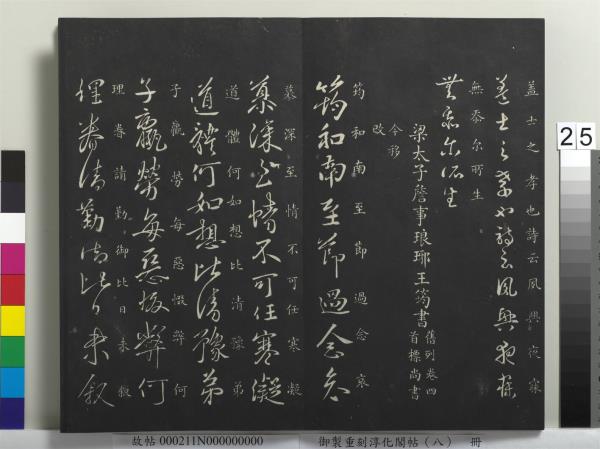 蓋士之孝也詩云夙興夜寐
蓋士之孝也詩云夙興夜寐
無忝尔所生
無忝尔所生
梁太子詹事琅琊王筠書
舊列卷四
首標尚書
今移
改
筠和南至節過念哀
筠和南至節過念哀
慕深至情不可任寒凝
慕深至情不可任寒凝
道體何如想比清豫弟
道體何如想比清豫弟
子羸勞每惡惙弊何
子羸勞每惡惙弊何
理眷請勤御比日未敘
理眷請勤御比日未敘
25
故帖 000211N000000000 御製重刻淳化閣帖（八） 冊